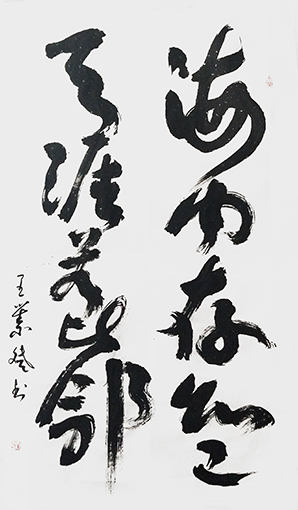 海内存知己
天涯若比邻
王業书